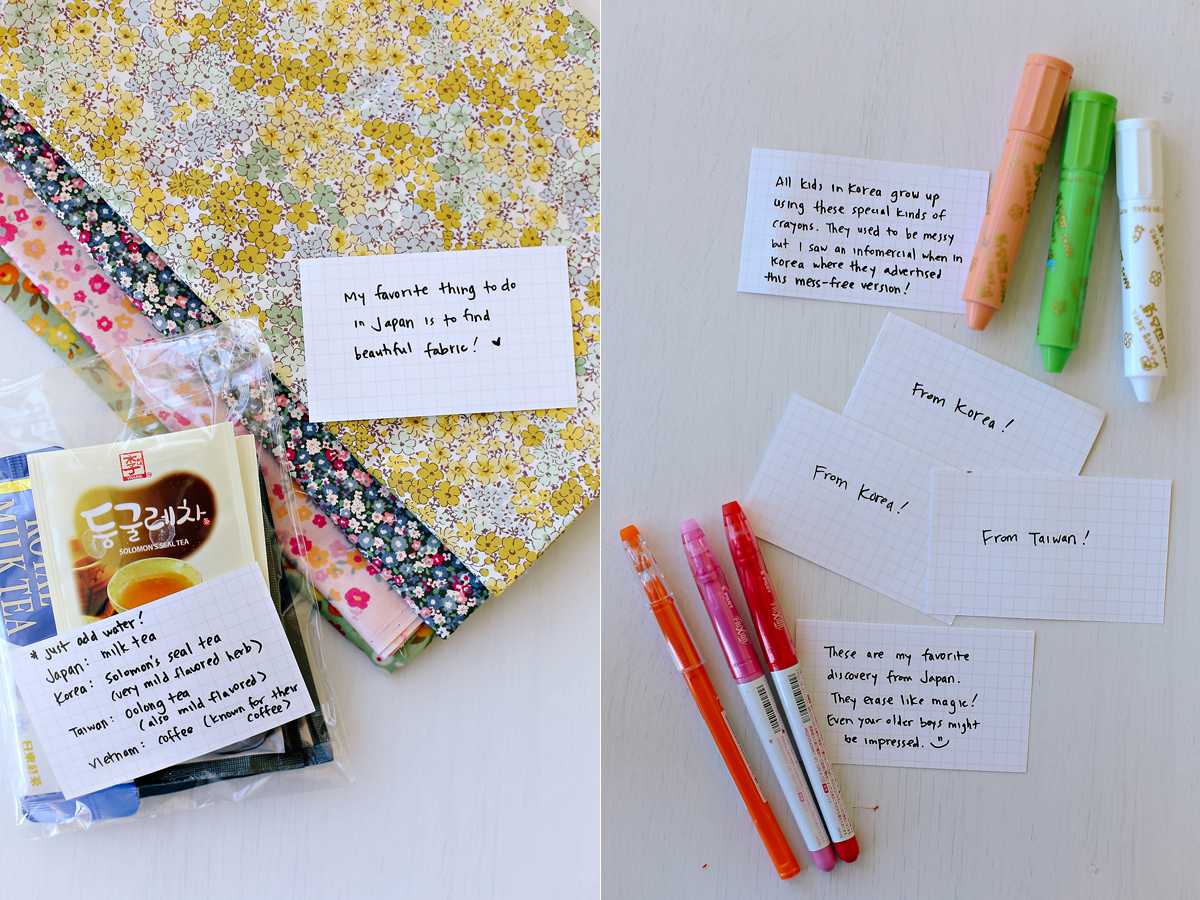 My favorite thing to do
in Japan is to find
beautiful fabric! ♥
ROYAL
MILK TEA
日東紅茶
李
둥굴레차
SOLOMON'S SEAL TEA
* just add water!
Japan: milk tea
Korea: Solomon's seal tea
(very mild flavored herb)
Taiwan: Oolong tea
(also mild flavored)
Vietnam: coffee (known for their
coffee)
All kids in Korea grow up
using these special kinds of
crayons. They used to be messy
but I saw an infomercial when in
Korea where they advertised
this mess-free version!
From Korea!
From Korea!
From Taiwan!
PILOT
PILOT
These are my favorite
discovery from Japan.
They erase like magic!
Even your older boys might
be impressed. :)